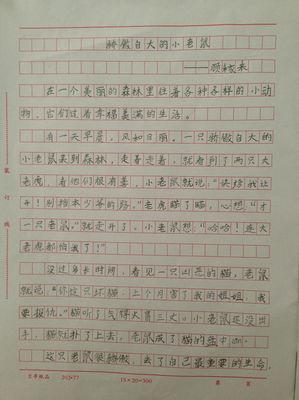 骄傲自大的小老鼠
——顾
在一个美丽的森林里住着各种各样的小动
物,它们过着幸福美满的生活。
有一天早晨,风和日丽。一只骄傲自大的
小老鼠来到森林,走着走着,就看到了两只大
老虎,看他们很有害,小老鼠就说:“快给我让
开!别挡本少爷的路。”老虎瞄了瞄,心想:“才
一只老鼠。”就走开了。小老鼠想:“哈哈!连大
老虎都怕我了!”
没过多长时间,看见一只凶恶的猫,老鼠
就说:“你这只坏猫,上个月害了我的姐姐,我
要报仇。”猫听了气得火冒三丈。小老鼠还没出
手,猫就扑了上去,老鼠成了猫的盘中
这只老鼠很骄傲,丢了自己最重要的生命。
装
订
线
263-77
15×20=300
第 页